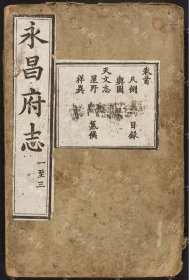 永昌府志
一至三
卷首
凡例 目録
輿圖
天文志
星野 氣候
祥異